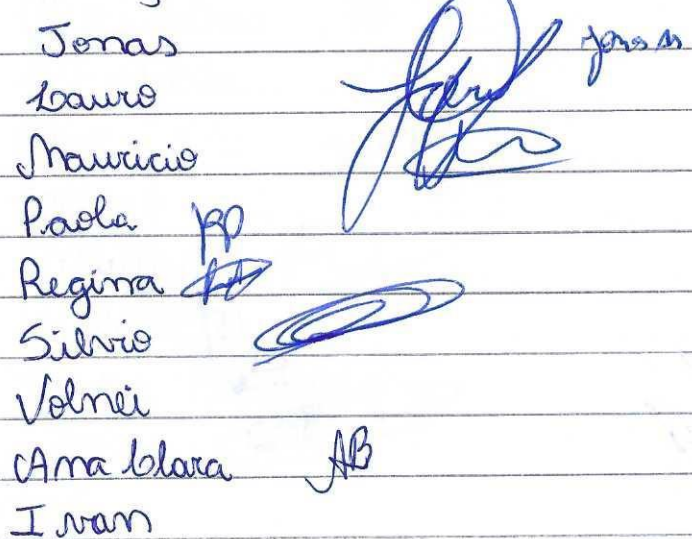 Jonas Jonas
Lauro
Mauricio
Paola
Regina
Silvio
Volnei
Ana Clara AB
Ivan